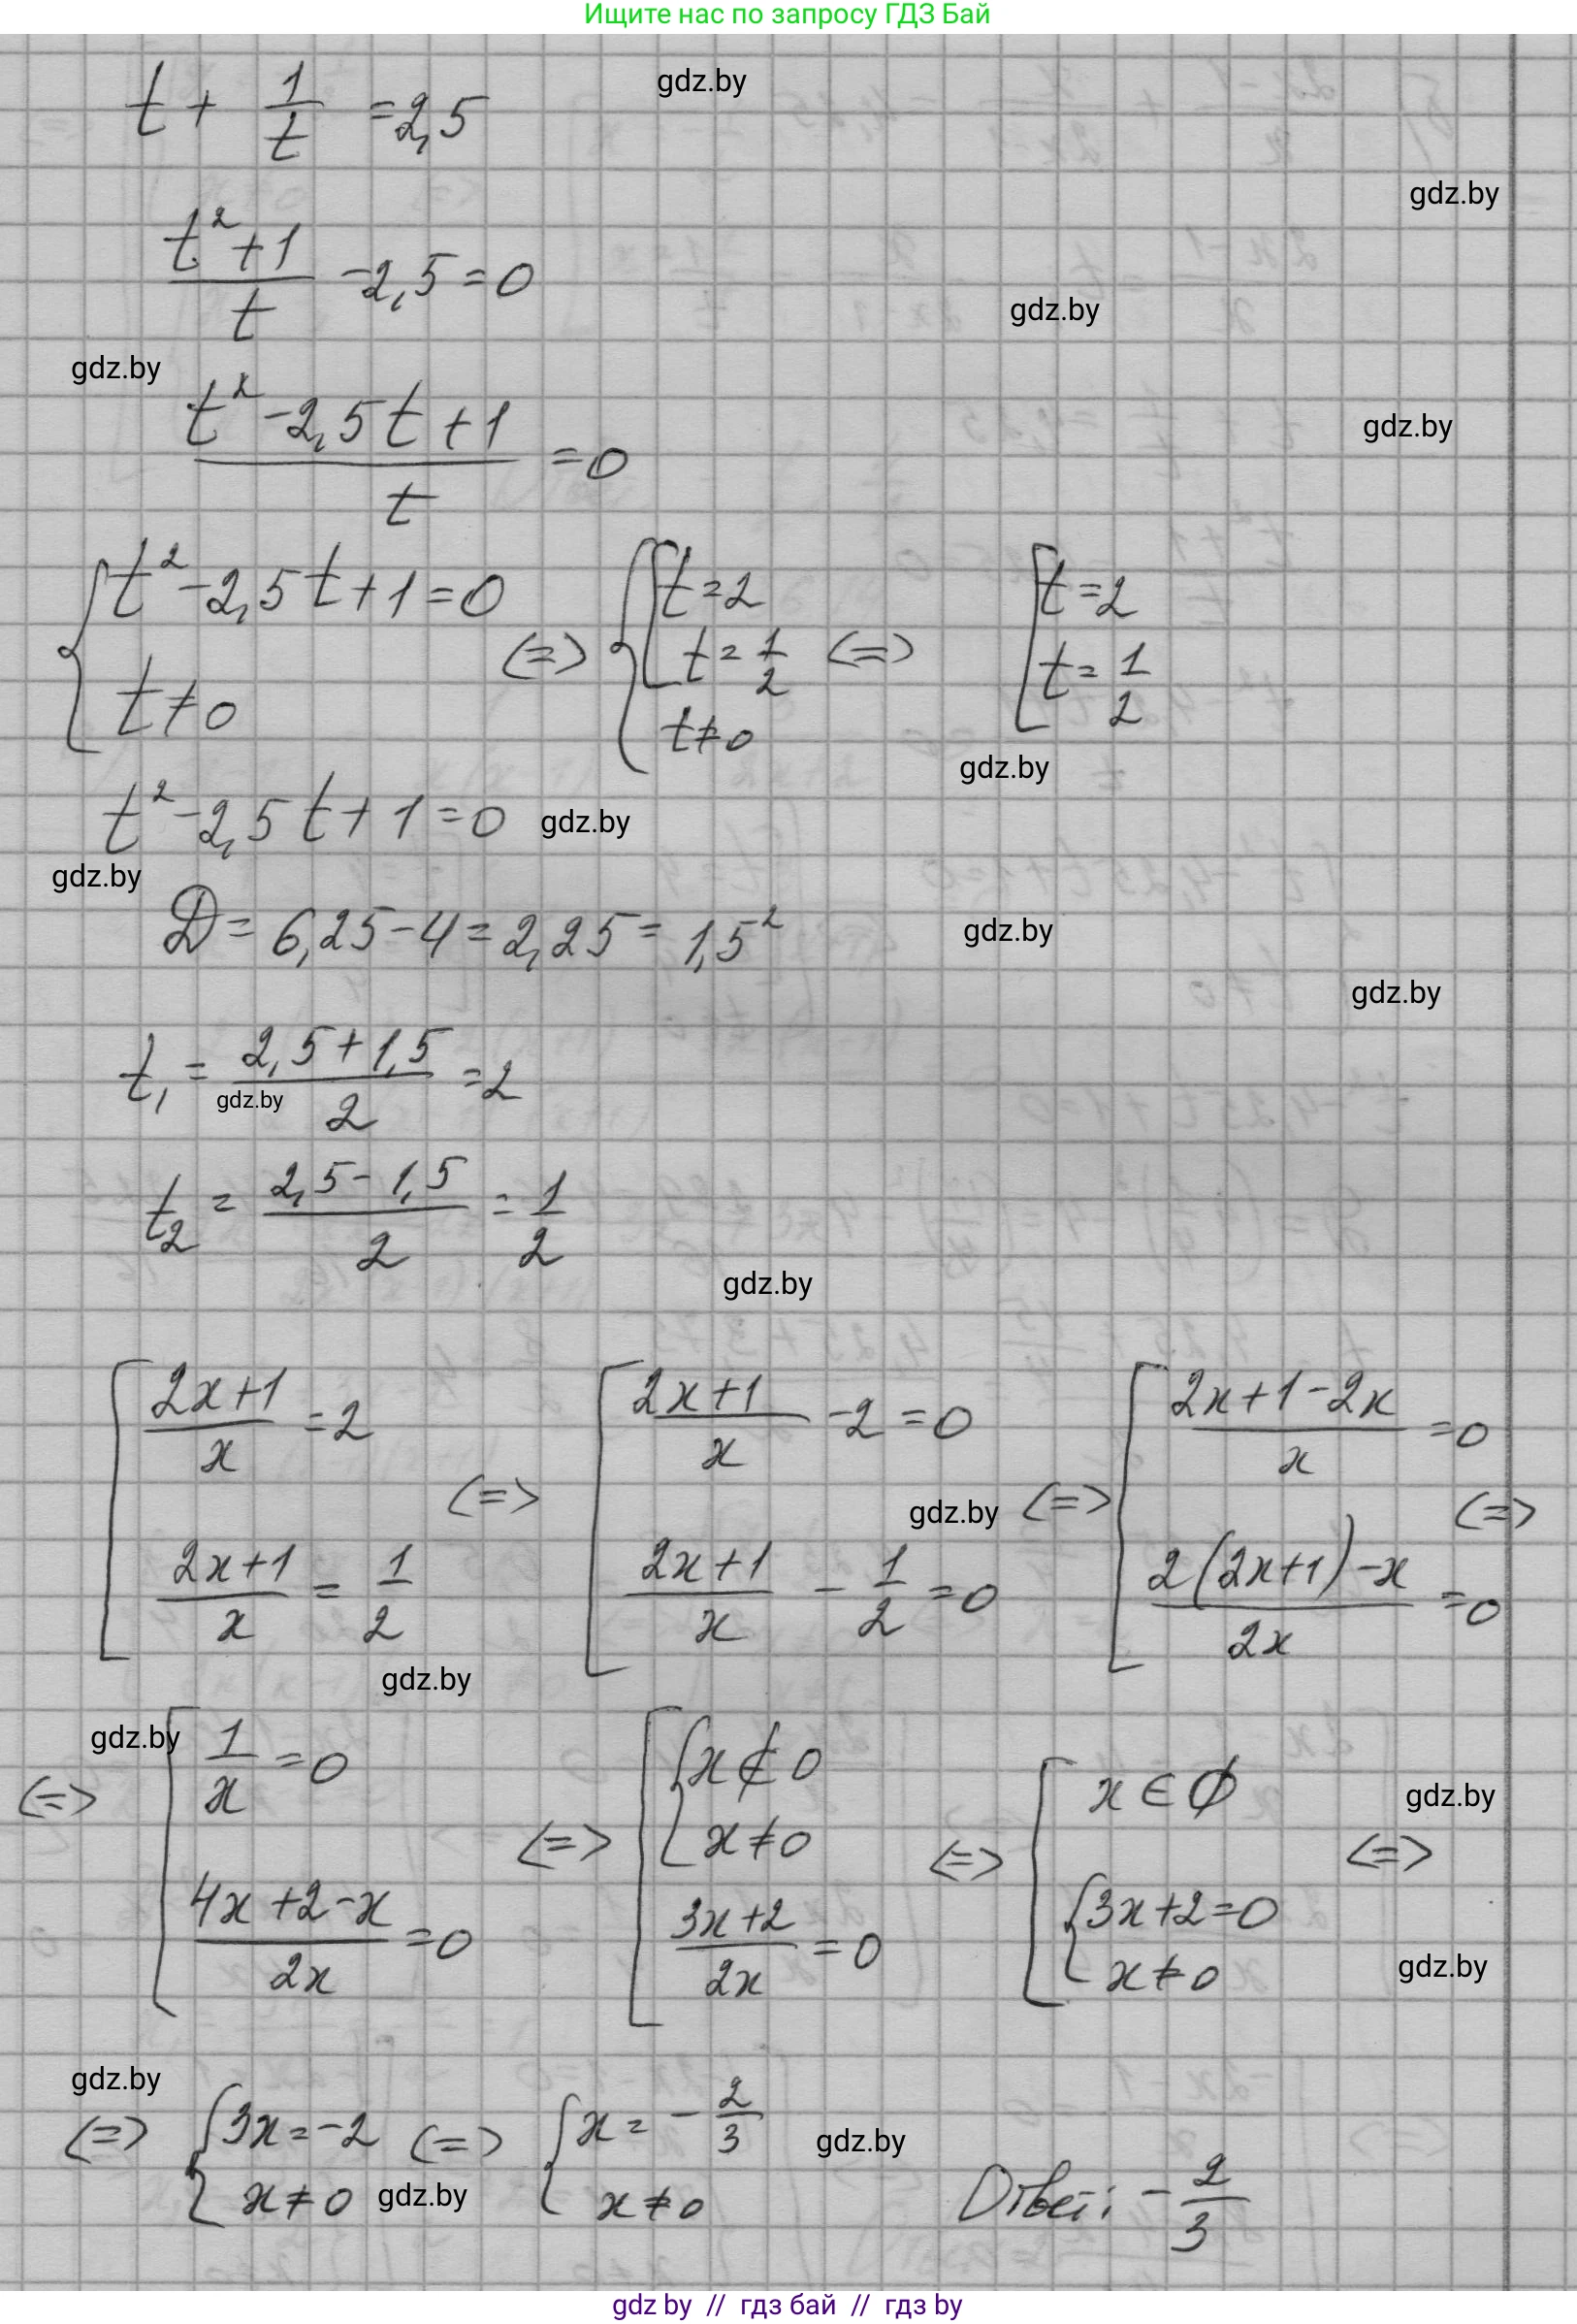 Ищите нас по запросу ГДЗ Бай
t + 1/t = 2,5
gdz.by
gdz.by
(t² + 1)/t - 2,5 = 0
gdz.by
gdz.by
(t² - 2,5t + 1)/t = 0
gdz.by
{ t² - 2,5t + 1 = 0 ; t ≠ 0 <=> { [ t = 2 ; t = 1/2 ; t ≠ 0 <=> [ t = 2 ; t = 1/2
gdz.by
t² - 2,5t + 1 = 0 gdz.by
gdz.by
D = 6,25 - 4 = 2,25 = 1,5²
gdz.by
gdz.by
t₁ = (2,5 + 1,5)/2 = 2
gdz.by
t₂ = (2,5 - 1,5)/2 = 1/2
gdz.by
[ (2x+1)/x = 2 ; (2x+1)/x = 1/2 <=> [ (2x+1)/x - 2 = 0 ; (2x+1)/x - 1/2 = 0 <=> [ (2x+1-2x)/x = 0 ; (2(2x+1)-x)/2x = 0 <=>
gdz.by
gdz.by
gdz.by
<=> [ 1/x = 0 ; (4x+2-x)/2x = 0 <=> [ { x ∉ 0 ; x ≠ 0 ; (3x+2)/2x = 0 <=> [ x ∈ ∅ ; { 3x+2=0 ; x ≠ 0 <=>
gdz.by
gdz.by
gdz.by
<=> { 3x = -2 ; x ≠ 0 <=> { x = -2/3 ; x ≠ 0
gdz.by
gdz.by
Ответ: -2/3
gdz by // гдз бай // гдз by